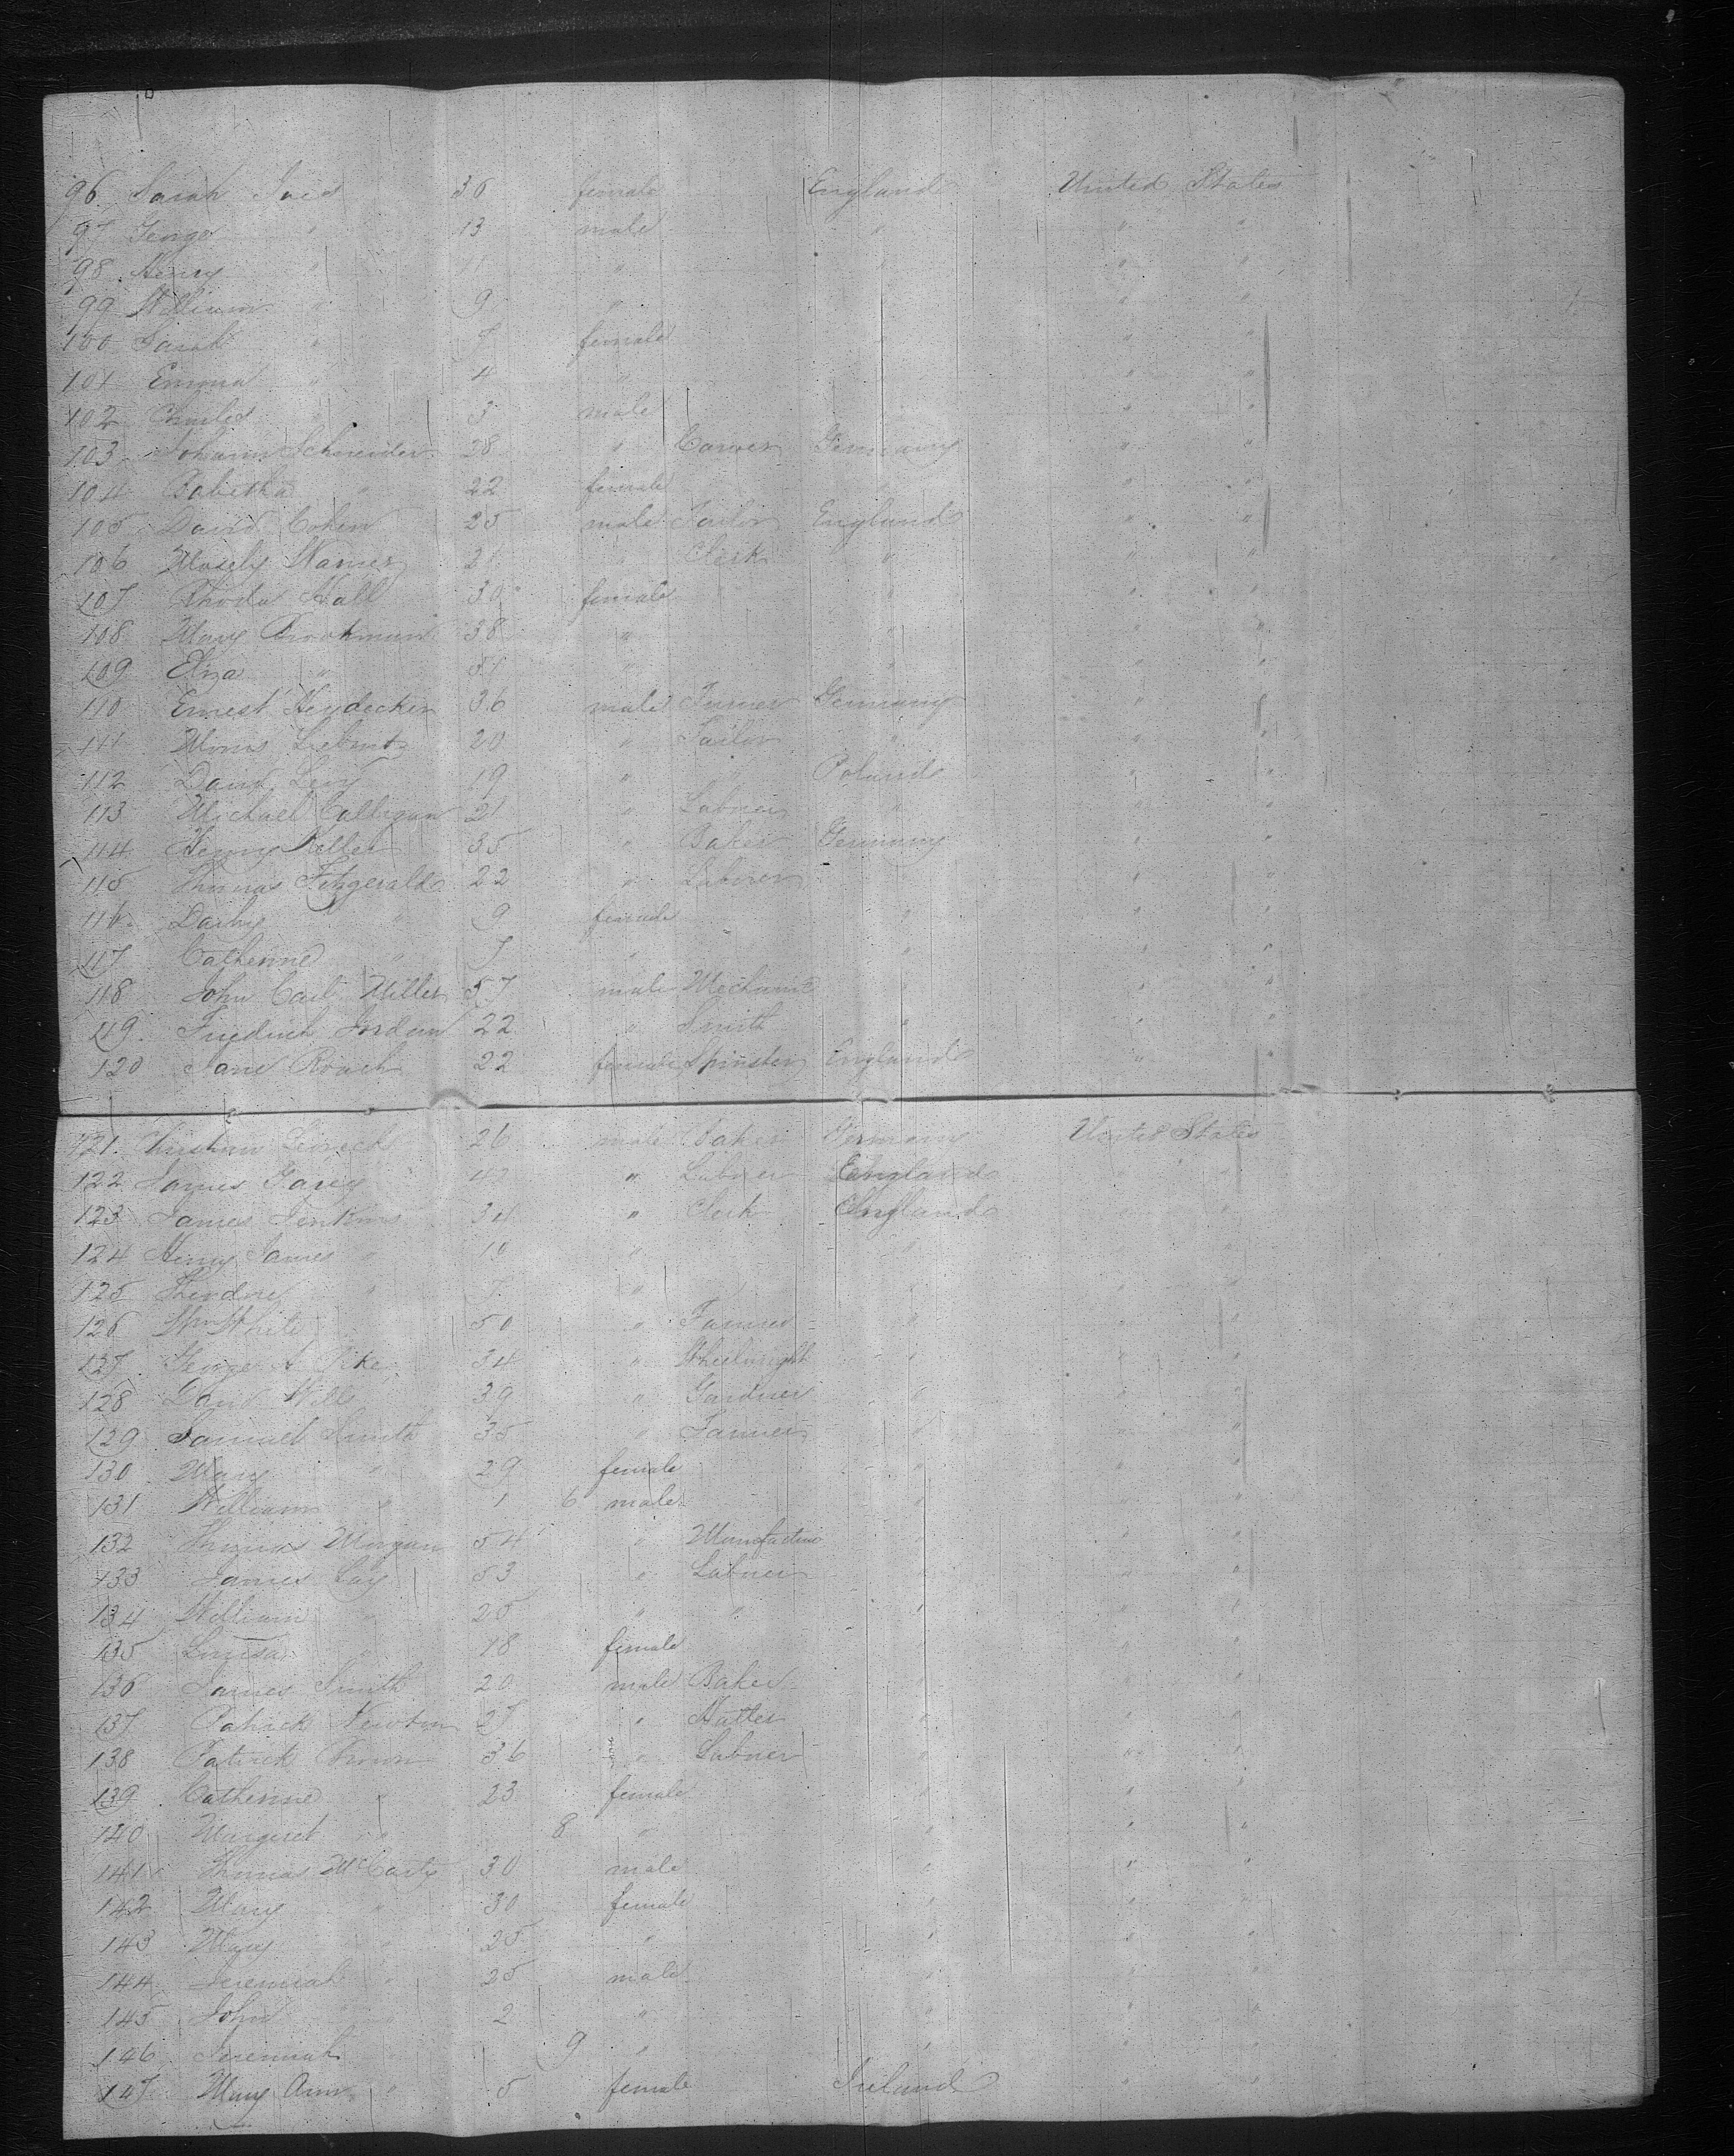 96 Sarah 36 female England United States
97 George " 13 male " " "
98 Henry " 11 " " " "
99 William " 9 " " " "
100 Sarah " 7 female " " "
101 Emma " 4 " " " "
102 Charles " 3 male " " "
103 Johann Schneider 28 " Carver Germany " "
104 Babetha " 22 female " "
105 David Cohen 25 male Tailor England " "
106 Mosely 21 " Clerk " " "
107 Rhoda Hall 30 female " " "
108 Mary Brookman 38 " " " "
109 Eliza " " " " "
110 Ernest Heydecker 36 male Germany " "
111 20 " Tailor " " "
112 David Levy 19 " " Poland " "
113 Michael Calligan 21 " Laborer " " "
114 Henry Keller 35 " Baker Germany " "
115 Thomas Fitzgerald 22 " Laborer " " "
116 " 9 female " " "
117 Catherine " 7 " " " "
118 John Carl Miller 57 male Mechanic " "
119 Friedrich Jordan 22 " Smith " " "
120 Jane Roach 22 female Spinster England " "
121 26 male Baker Germany United States
122 James " Laborer England " "
123 James Jenkins 34 " Clerk England " "
124 Henry James " 10 " " " "
125 " 7 " " " "
126 Wm White 50 " Farmer " " "
127 George A. Pike 34 " Wheelwright " " "
128 David Will 39 " Gardner " " "
129 Samuel Smith 35 " Farmer " " "
130 Mary " 29 female " " "
131 William " 1 6 male " " "
132 Thomas Morgan 54 " " " "
133 James Cay 53 " Laborer " " "
134 William " 25 " " " " "
135 Louisa " 18 female " "
136 James Smith 20 male Baker " " "
137 Patrick Newton 27 " Hatter " " "
138 Patrick Brown 36 " Laborer " " "
139 Catherine " 23 female " " "
140 Margaret " 8 " " " "
141 Thomas McCarty 30 male " " "
142 Mary " 30 female " " "
143 Mary " 25 " " " "
144 Jeremiah " 25 male " " "
145 John " 2 " " " "
146 Jeremiah " 9 " " " "
147 Mary Ann " 5 female Ireland " "